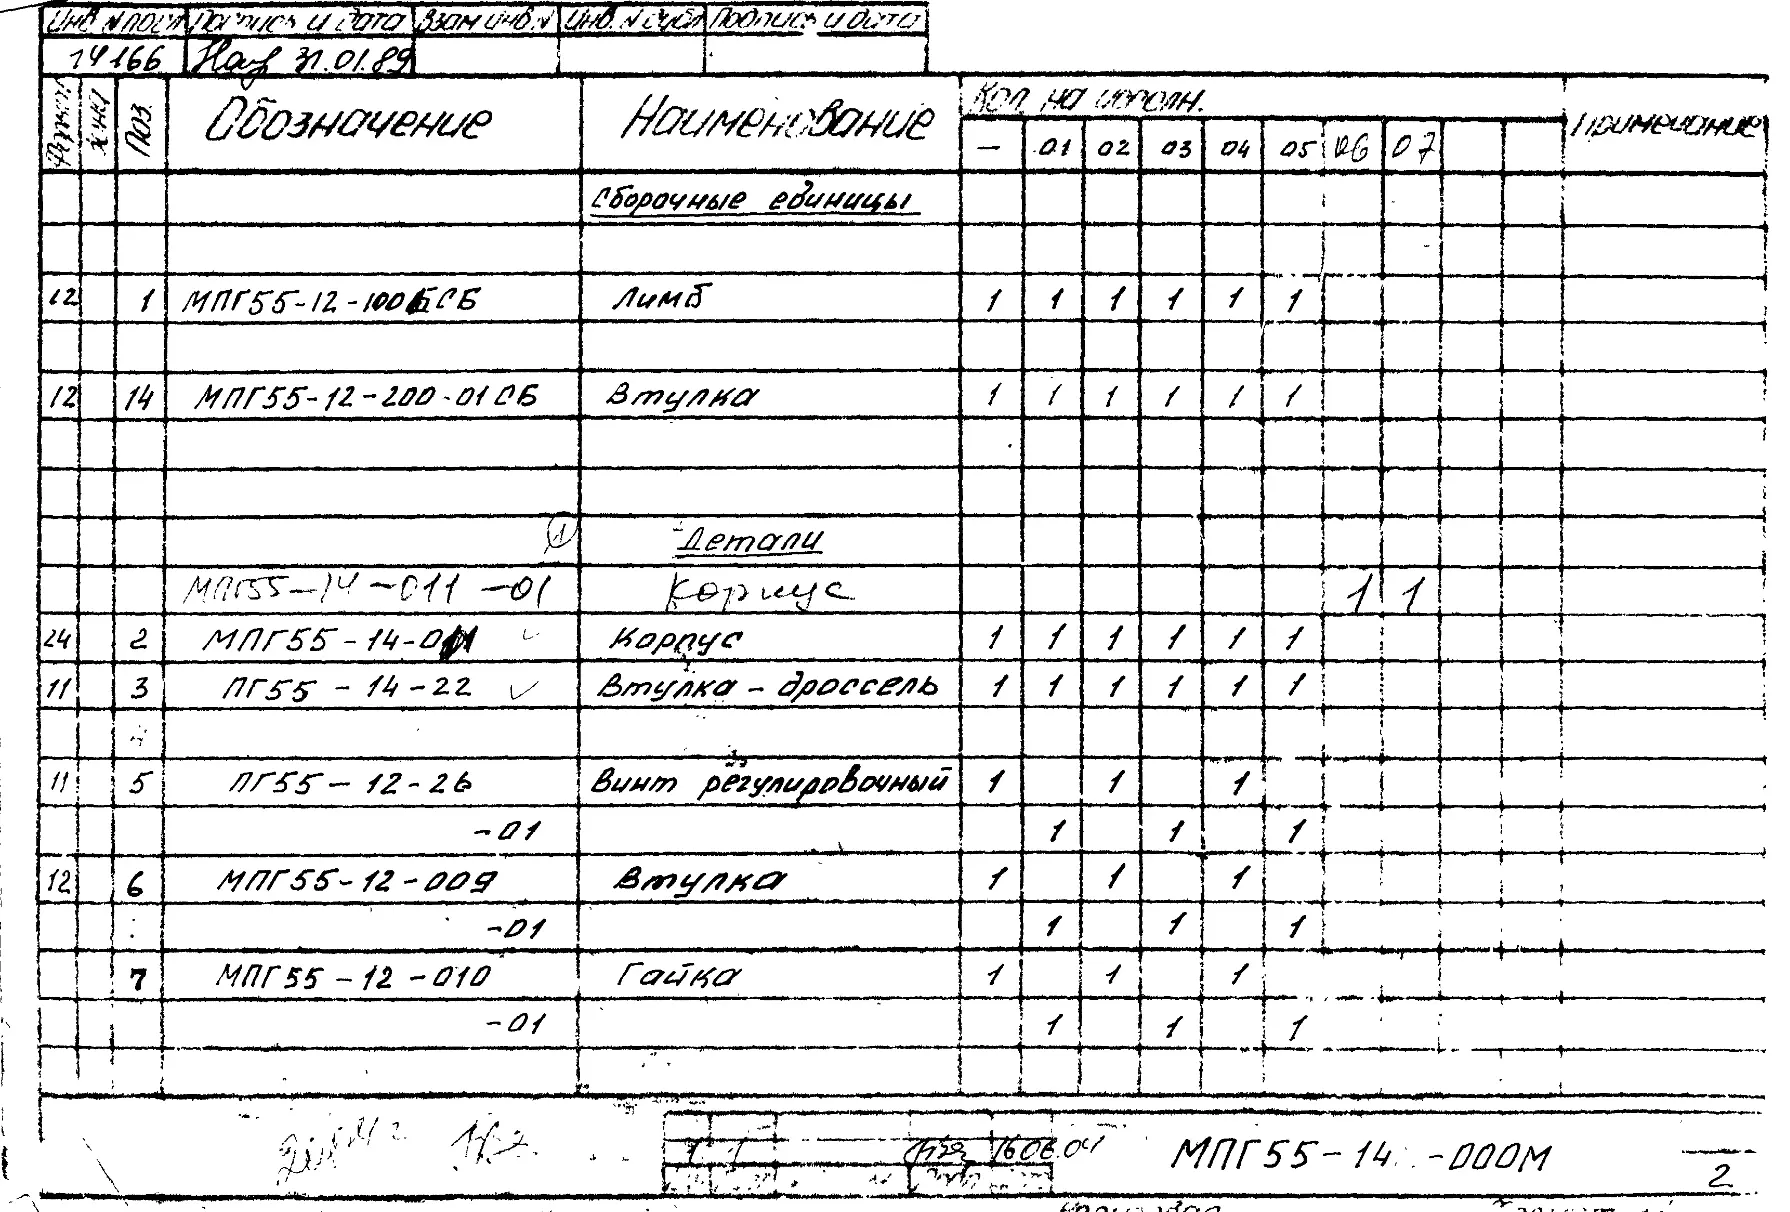 Инв. N подл Подпись и дата Взам инв. N Инв. N дубл Подпись и дата
14166 31.01.89
Формат Зона Поз. Обозначение Наименование Кол. на исполн. Примечание
— 01 02 03 04 05 06 07
Сборочные единицы
12 1 МПГ55-12-100БСБ Лимб 1 1 1 1 1 1
12 14 МПГ55-12-200-01СБ Втулка 1 1 1 1 1 1
1 Детали
МПГ55-14-011-01 Корпус 1 1
24 2 МПГ55-14-011 Корпус 1 1 1 1 1 1
11 3 ПГ55-14-22 Втулка-дроссель 1 1 1 1 1 1
4
11 5 ПГ55-12-26 Винт регулировочный 1 1 1
-01 1 1 1
12 6 МПГ55-12-009 Втулка 1 1 1
-01 1 1 1
7 МПГ55-12-010 Гайка 1 1 1
-01 1 1 1
1 1 16.06.04 МПГ55-14 -000М
2